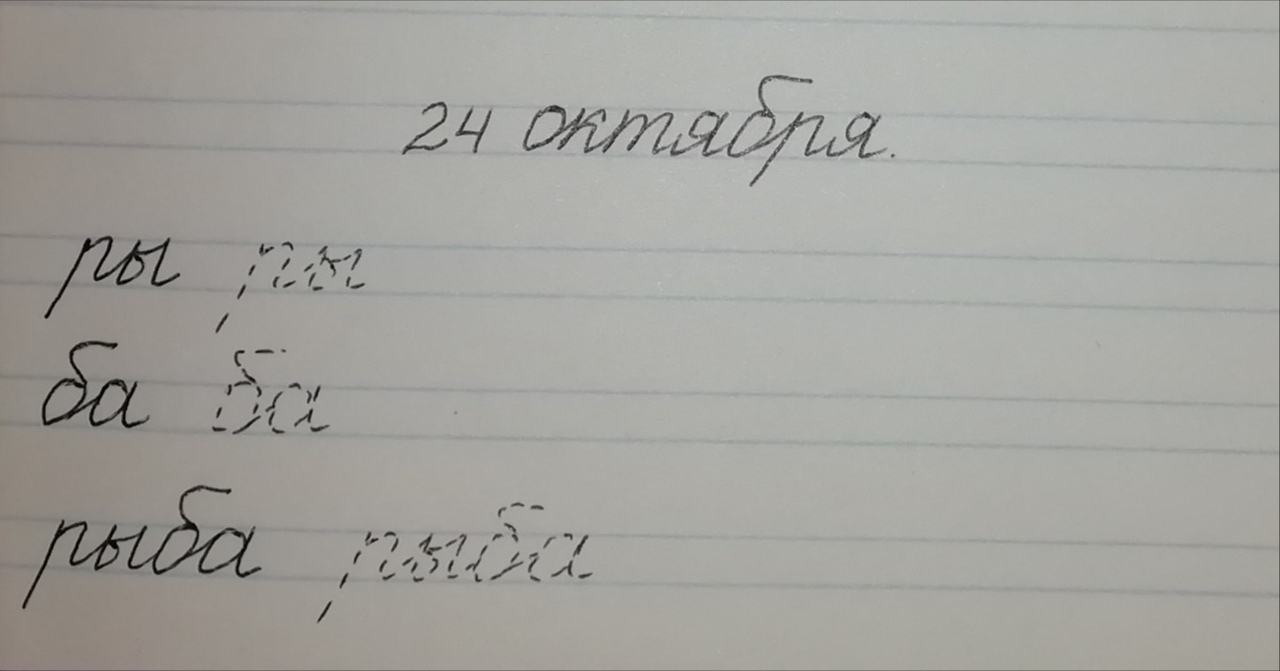 24 октября.
ры ры
ба ба
рыба рыба